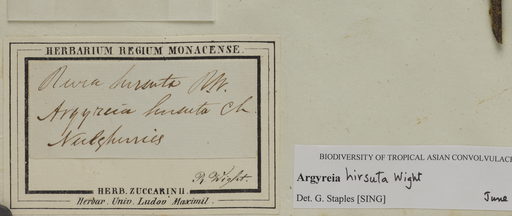 HERBARIUM REGIUM MONACENSE.
Rivea hirsuta RW.
Argyreia hirsuta Ch.
Neelgherries
R. Wight.
HERB. ZUCCARINII.
Herbar. Univ. Ludov Maximil.
BIODIVERSITY OF TROPICAL ASIAN CONVOLVULACE
Argyreia hirsuta Wight
Det. G. Staples [SING] June